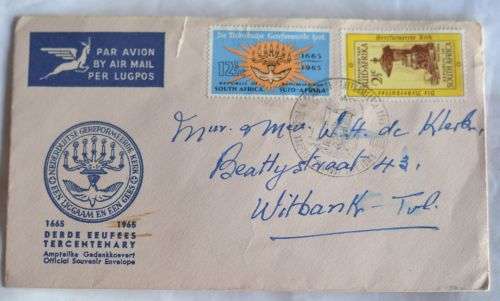 PAR AVION
BY AIR MAIL
PER LUGPOS
Die Nederduitse Gereformeerde Kerk
1665
1965
12½c
REPUBLIC OF SOUTH AFRICA
REPUBLIEK VAN SUID-AFRIKA
Gereformeerde Kerk
2½c
Mnr. & Mev. W. H. de Klerk,
Beattystraat 43,
Witbank - Tvl.
NEDERDUITSE GEREFORMEERDE KERK
EEN LIGGAAM EN EEN GEES
1665 1965
DERDE EEUFEES
TERCENTENARY
Amptelike Gedenkkoevert
Official Souvenir Envelope